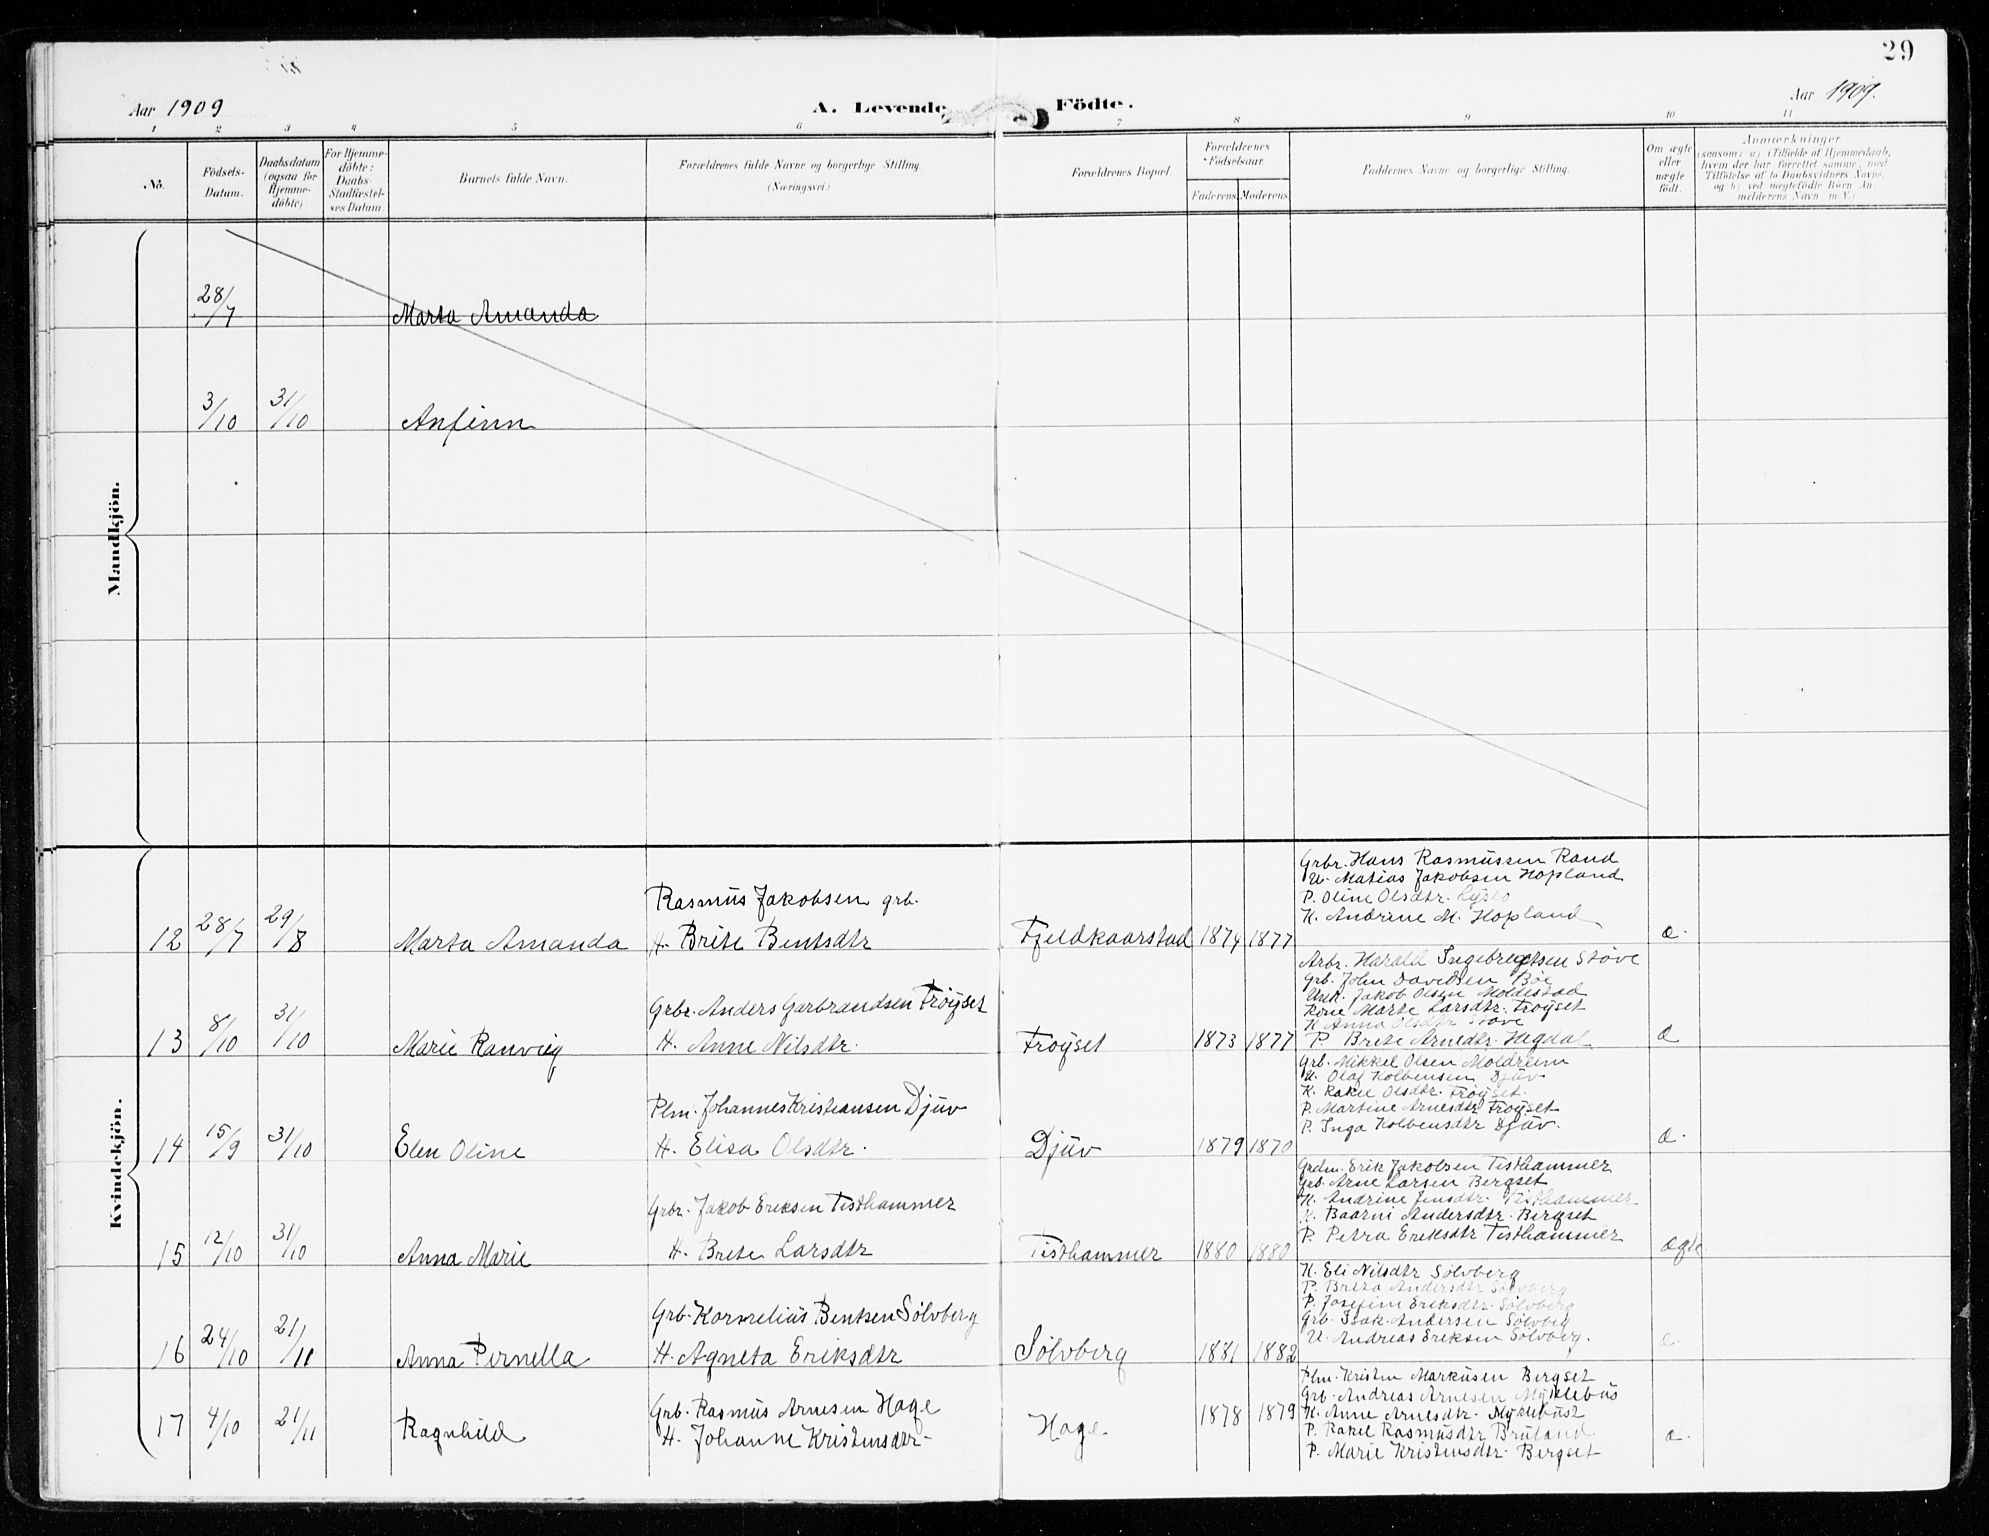 29
Aar 1909
A. Levende Födte.
Aar 1909.
1 2 3 4 5 6 7 8 9 10 11
No.
Födsels-Datum.
Daabsdatum (ogsaa for Hjemme-døbte)
For Hjemme-døbte: Daabs-Stadfæstel-ses Datum
Barnets fulde Navn.
Forældrenes fulde Navne og borgerlige Stilling. (Næringsvei)
Forældrenes Bopæl.
Forældrenes Födselsaar.
Faderens. Moderens.
Faddernes Navne og borgerlige Stilling.
Om ægte eller uægte født.
Anmærkninger
(saasom: a) i Tilfælde af Hjemmedaab, hvem der har forrettet samme, med Tilføielse af to Daabsvidners Navne, og b) ved uægtefödte Börn An-melderens Navn m. V.)
Mandkjön.
28/7 Marta Amanda
3/10 31/10 Anfinn
Kvindekjön.
Grbr. Hans Rasmussen Rand
U. Matias Jakobsen Hopland
Rasmus Jakobsen grb.
P. Oline Olsdtr.
K. Andrine M. Hopland
12 28/7 29/8 Marta Amanda H. Brite Bentsdtr Fjeldkaarstad 1874 1877 æ.
Arbr. Harald Ingebregtsen Støve
Grb. John Davidsen Bøe
Unk. Jakob Olsen Moldestad
Grbr. Anders Garbrandsen Frøyset
Kone Marte Larsdtr. Frøyset
K Anna Olsdtr Støve
13 8/10 31/10 Marie Ranveig H. Anne Nilsdtr. Frøyset 1873 1877 P. Brite Arnedtr. Hegdal æ
Grb. Mikkel Olsen Moldreim
U. Olaf Kolbensen Djuv
K. Rakel Olsdtr. Frøyset.
Plm. Johannes Kristiansen Djuv
P. Martine Arnesdtr Frøyset
P. Inga Kolbensdtr Djuv.
14 15/9 31/10 Elen Oline H. Elisa Olsdtr. Djuv 1879 1870 æ.
Grdm. Erik Jakobsen Tisthammer
Grb. Arne Larsen Bergset
K. Andrine Jensdtr. Tisthammer.
Grbr. Jakob Eriksen Tisthammer
K. Baarni Andersdtr. Bergset
P. Petra Eriksdtr Tisthammer
15 12/10 31/10 Anna Marie H. Brite Larsdtr Tisthammer 1880 1880 ægte.
K. Eli Nilsdtr Sølvberg
P. Brita Andersdtr Sølvberg
P. Josefine Eriksdtr. Sølvberg
Grb. Kornelius Bentsen Sølvberg
Grb. Isak Andersen Sølvberg
U. Andreas Eriksen Sølvberg.
16 24/10 21/11 Anna Pernella H. Agneta Eriksdtr Sølvberg 1881 1882 æ
Plm. Kristen Markusen Bergset
Grb. Andreas Arnesen Myklebus
Grb. Rasmus Arnesen Hage
K. Anne Arnesdtr. Myklebust
17 4/10 21/11 Ragnhild H. Johanne Kristensdtr. Hage. 1878 1879
P. Rakel Rasmusdtr Bruland æ.
P. Marie Kristensdtr. Bergset